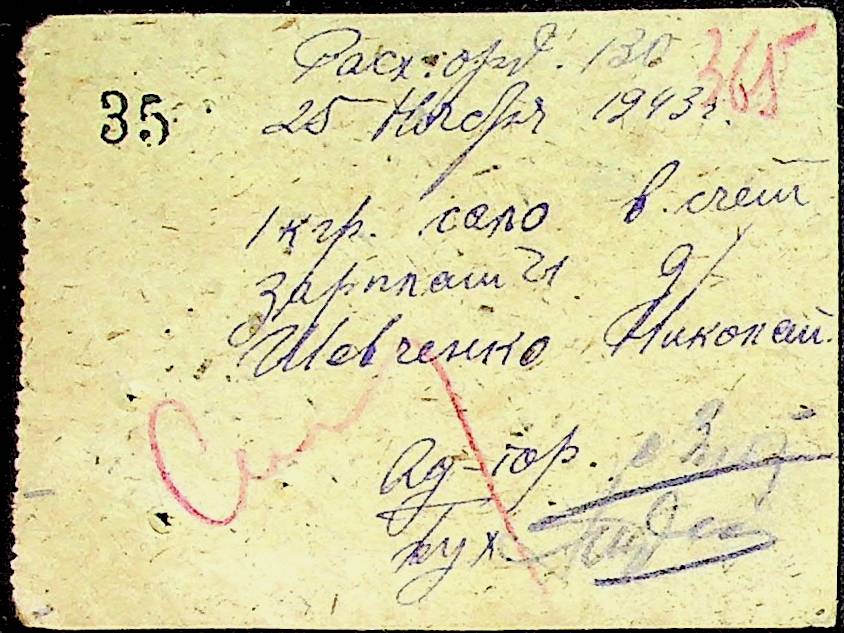 365
Расх. орд. 130
35
25 Ноября 1943 г.
1 кгр. сало в счет
зарплаты
Шевченко Николай.
Ад-тор.
бух.